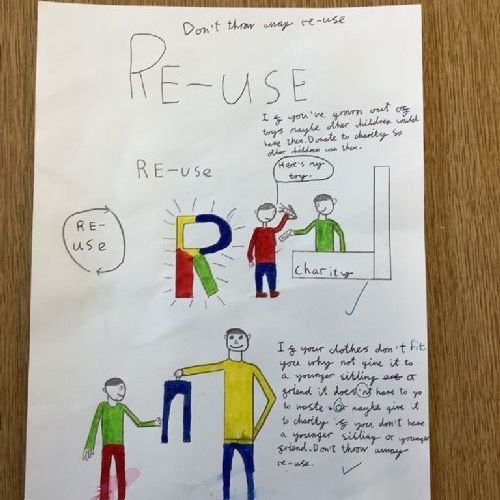 Don't throw away re-use
RE-USE
If you've grown out of
toys maybe other children would
have them. Donate to charity so
other children can them.
Here's my
toy.
RE-USe
RE-
USe
R
Charity
If your clothes don't fit
you why not give it to
a younger sibling or
friend it does'nt have to go
to waste or maybe give it
to charity if you don't have
a younger sibling or younger
friend. Don't throw away
re-use.